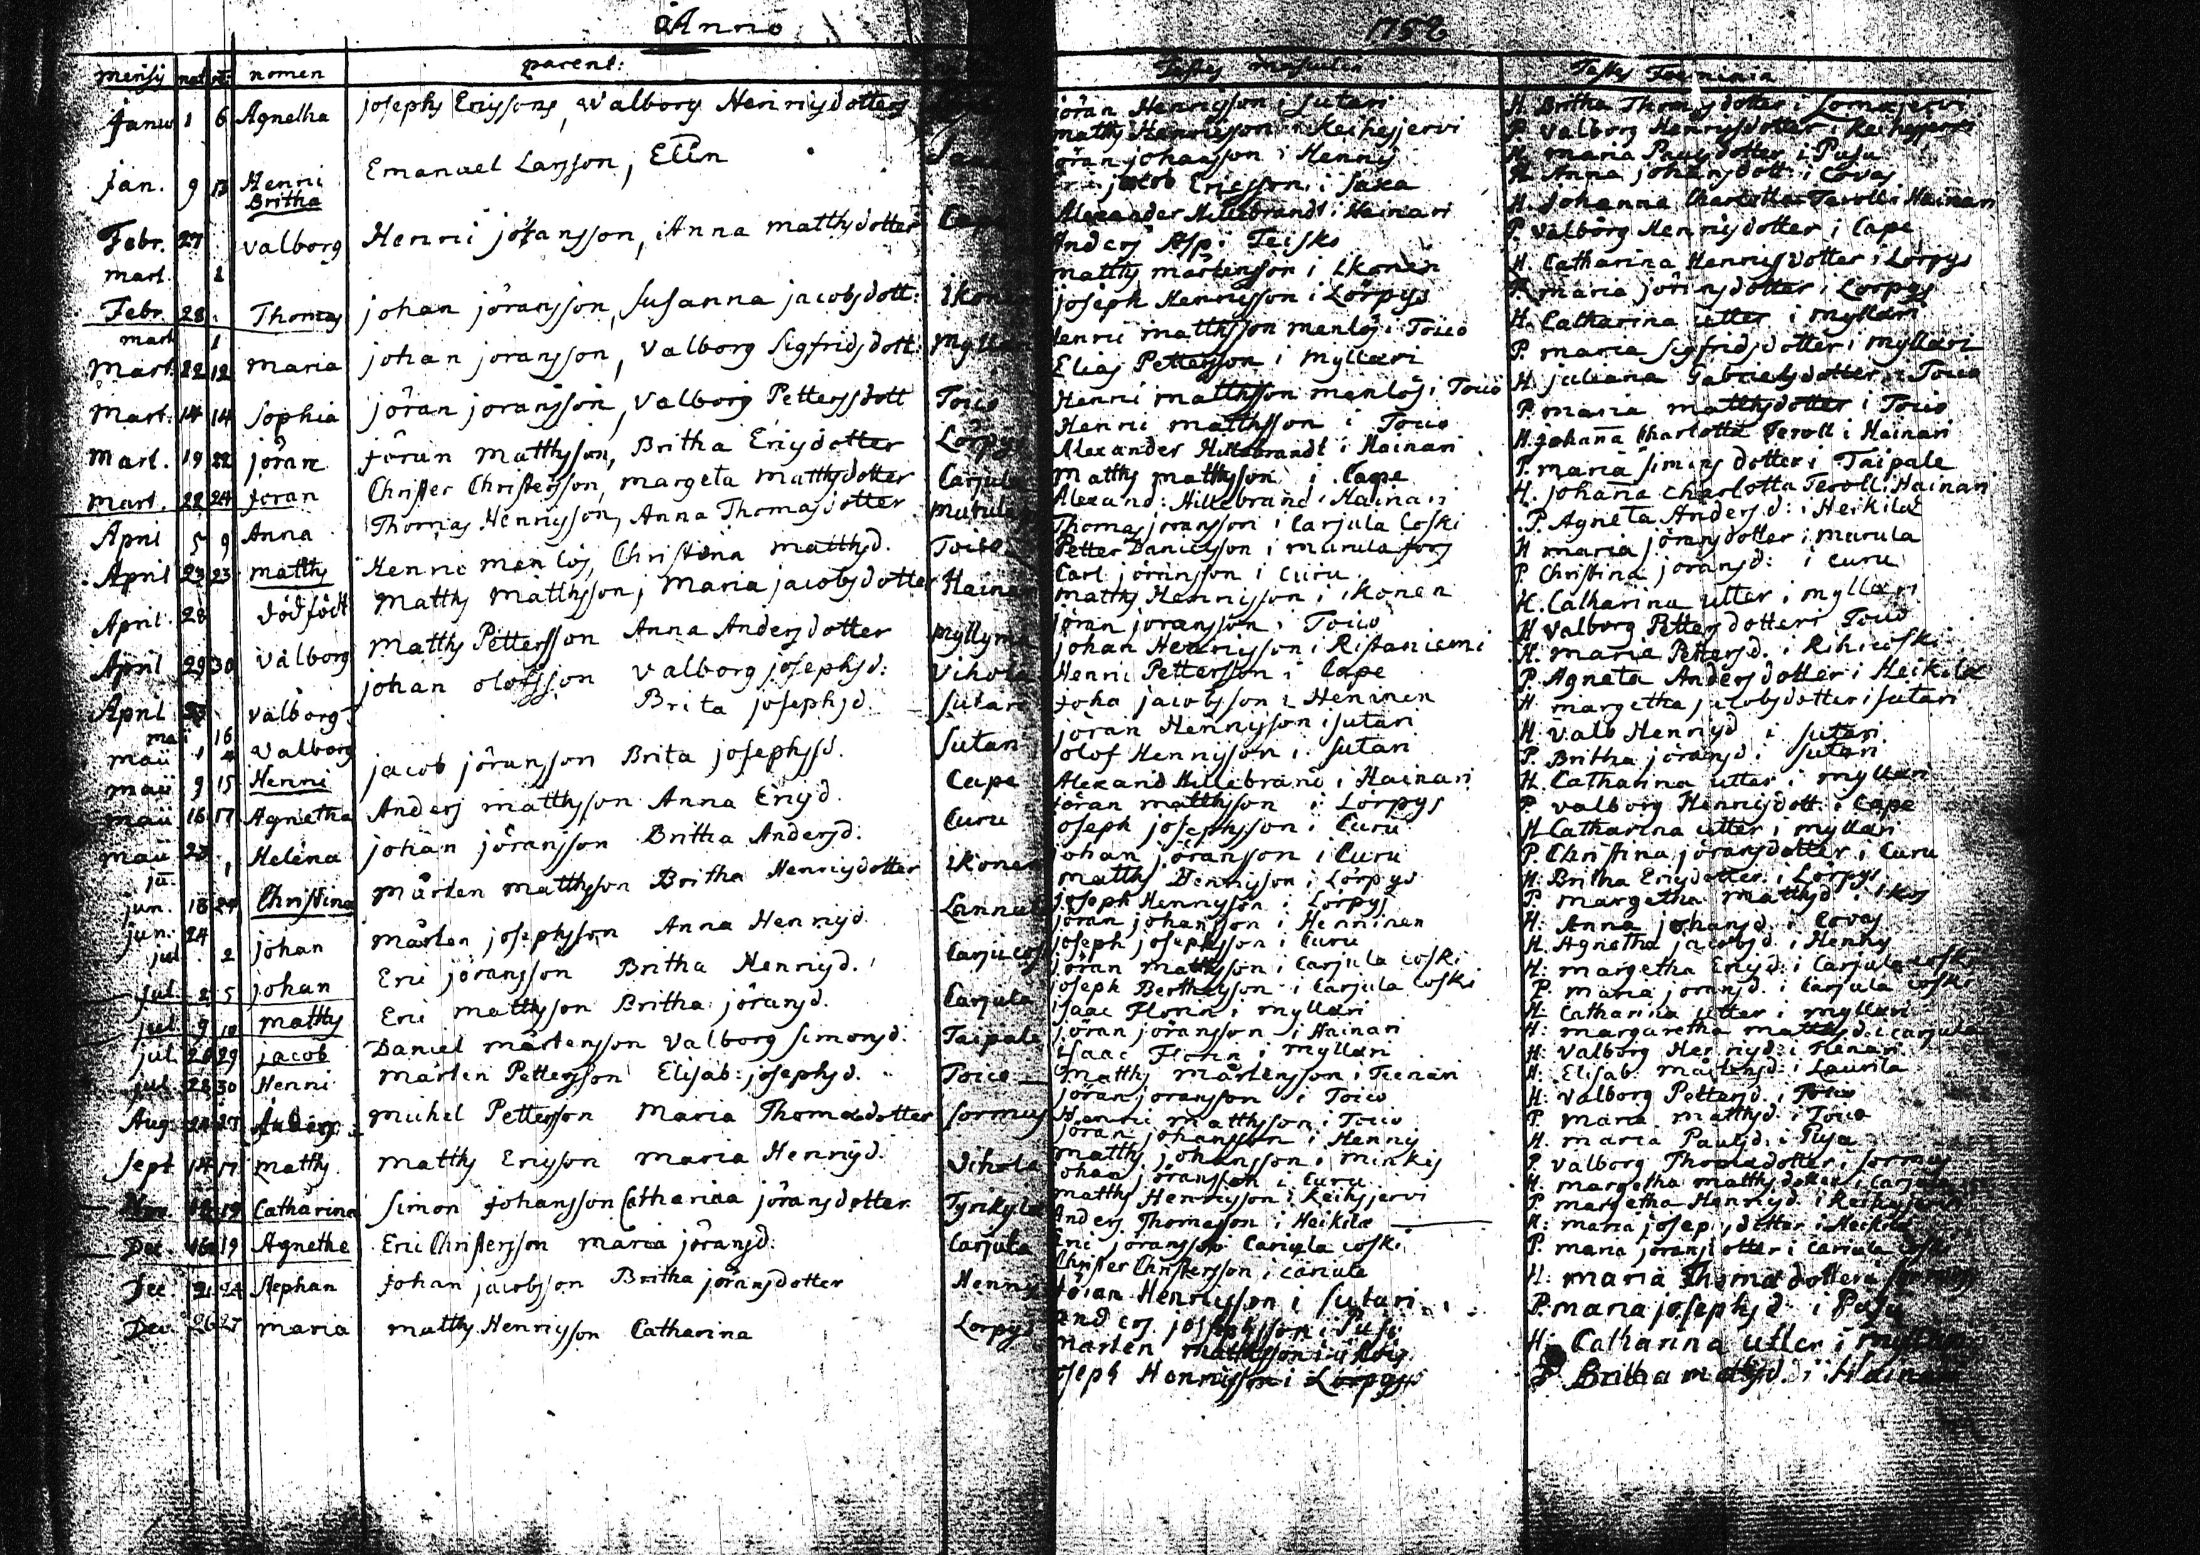 Anno 1752
mensis nat. nomen parent: Testes masculin Testes Foeminia
Janu 1 6 Agnetha josephs Ericssons, Walborg Henricsdotters
jöran Henricsson i Sutari H. Britha Thomasdotter i Lomajervi
matths Henricsson i Keihesjervi P. Valborg Henricsdotter i Keihesjervi
Jan. 9 13 Henric Emanuel Larsson, Elin
Britha
jöran johansson i Hennis H. maria Paulsdotter i Pusu
jacob Ericsson i Saxa P. Anna johansdott: i Covas
Febr. 27 Valborg Henric johansson, Anna matthsdotter Cape
mart. 1
Alexander Hillebrandt i Hainari H. Johanna Charlotta Teroll i Hainari
Anders Asp i Teisko P. Valborg Henricsdotter i Cape
Febr. 28 Thomas johan jöransson, Susanna jacobsdott: ikonen
mart 1
matths mårtensson i ikonen H. Catharina Henricsdotter i Lörpys
joseph Henricsson i Lörpys P. maria jöransdotter i Lörpys
Mart. 22 12 maria johan joransson, Valborg Sigfridsdott: Myllari
Henric matthsson menlös i Toico H. Catharina utter i myllari
Elias Pettersson i myllari P. maria Sigfridsdotter i myllari
Mart. 14 14 Sophia jöran joransson, Valborg Pettersdott Toico
Henric matthsson menlös i Toico H. juliana Gabrielsdotter i Toico
Henric matthsson i Toico P. maria matthsdotter i Toico
Mart. 19 22 jöran Jöran Matthsson, Britha Ericsdotter Lörpys
Alexander Hillebrandt i Hainari H. johanna Charlotta Teroll i Hainari
Matths matthsson i Cape P. maria Simonsdotter i Taipale
Mart. 22 24 Jöran Christer Christersson, margeta matthsdotter Carjula
Alexand: Hillebrand i Hainari H. johanna Charlotta Teroll i Hainari
Thomas joransson i Carjula Coski P. Agneta Andersd: i Heikilä
April 5 9 Anna Thomas Henricsson, Anna Thomasdotter Murula
Petter Danielsson i murula fors H maria jöransdotter i murula
Carl jöransson i Curu P. Christina joransd: i Curu
April 23 23 matths Henric menlös, Christina matthsd. Toico
matths Henricsson i ikonen H. Catharina utter i myllari
jöran joransson i Toico H Valborg Pettersdotter i Toico
April 28 dödfödt Matths Matthsson, Maria jacobsdotter Hainari
April 29 30 Valborg Matths Pettersson Anna Andersdotter Myllymä
johan Henricsson i Ristaniemi H. maria Pettersd. i Rihicoski
Henric Pettersson i Cape P. Agneta Andersdotter i Heikilä
April 23 Valborg johan olofsson Valborg josephsd: Vihola
maii 16
Joha jacobsson i Heninen H margetha jacobsdotter i Sutari
maii 1 4 Walborg Brita josephsd. Sutari
jöran Henricsson i Sutari H. Valb Henricsd i Sutari
olof Henricsson i Sutari P. Britha jöransd i Sutari
maii 9 15 Henric jacob jöransson Brita josephssd. Sutari
maii 16 17 Agnetha Anders matthsson Anna Ericsd. Cape
Alexand Hillebrand i Hainari H. Catharina utter i myllari
Jöran matthsson i Lorpys P Valborg Henricsdott. i Cape
maii 27 Helena johan jöransson Britha Andersd. Curu
ju. 1
joseph josephsson i Curu H Catharina utter i myllari
johan jöransson i Curu P. Christina jöransdotter i Curu
jun. 18 24 Christina Mårten matthsson Britha Henricsdotter ikonen
matths Henricsson i Lörpys H. Britha Ericsdotter i Lorpys
joseph Henricsson i Lorpys P margetha matthsd.
jun. 24 johan mårten josephsson Anna Henricsd
jul 2
jöran johansson i Henninen H: Anna johansd. i Covas
joseph josephsson i Curu H. Agnetha jacobsd. i Hennis
jul. 2 5 johan Eric jöransson Britha Henricsd. Carjucos
jöran matthsson i Carjula coski H: margetha Ericsd: i Carjula coski
joseph Berthelsson i Carjula Coski P. maria joransd. i Carjula coski
jul. 9 10 matths Eric matthsson Britha jöransd. Carjula
isaac Florin i myllari H. Catharina utter i myllari
jöran jöransson i Hainari H: margaretha matthsd. i Carjula
jul. 28 29 jacob Daniel mårtensson Valborg Simonsd. Taipale
isaac Florin i myllari H: Valborg Henricsd.
Matths mårtensson i Teenari H: Elisab. Mårtensd. i Laurila
jul. 28 30 Henric Mårten Pettersson Elisab: josephsd. Toico
jöran joransson i Toico H: Valborg Pettersd. i Toico
Henric matthsson i Toico P. Maria matthsd. i Toico
Aug. 24 27 Anders Michel Pettersson Maria Thomasdotter Sormus
jöran johansson i Hennis H. maria Paulsd. i Pusu
matths johansson i minkis P. Valborg Thomasdotter i Sormus
Sept 14 17 Matths Matths Ericsson Maria Henricsd. Vihola
johan jöransson i Curu H. margetha matthsdotter i Carjula
matths Henricsson i Keihsjervi P. margetha Henricsd. i Keihsjervi
19 Catharina Simon Johansson Catharina jöransdotter. Tyrikylä
Anders Thomasson i Heikilä H: maria josepsdotter i Heikilä
Dec 16 19 Agnethe Eric Christersson maria jöransd. Carjula
Eric jöransson Carjula coski P. maria jöransdotter i Carjula coski
Christer Christersson i Carjula
Dec. 21 24 Stephan Johan jacobsson Britha jöransdotter Hennis
Jöran Henricsson i Sutari H: maria Thomasdotter i Sormus
Anders josephsson i Pusu P. maria josephsd: i Pusu
Dec. 26 27 maria matths Henricsson Catharina Lorpys
Mårten matthsson i H: Catharina utter i myllari
joseph Henricsson i Lörpys P Britha mattsd. i Hainari